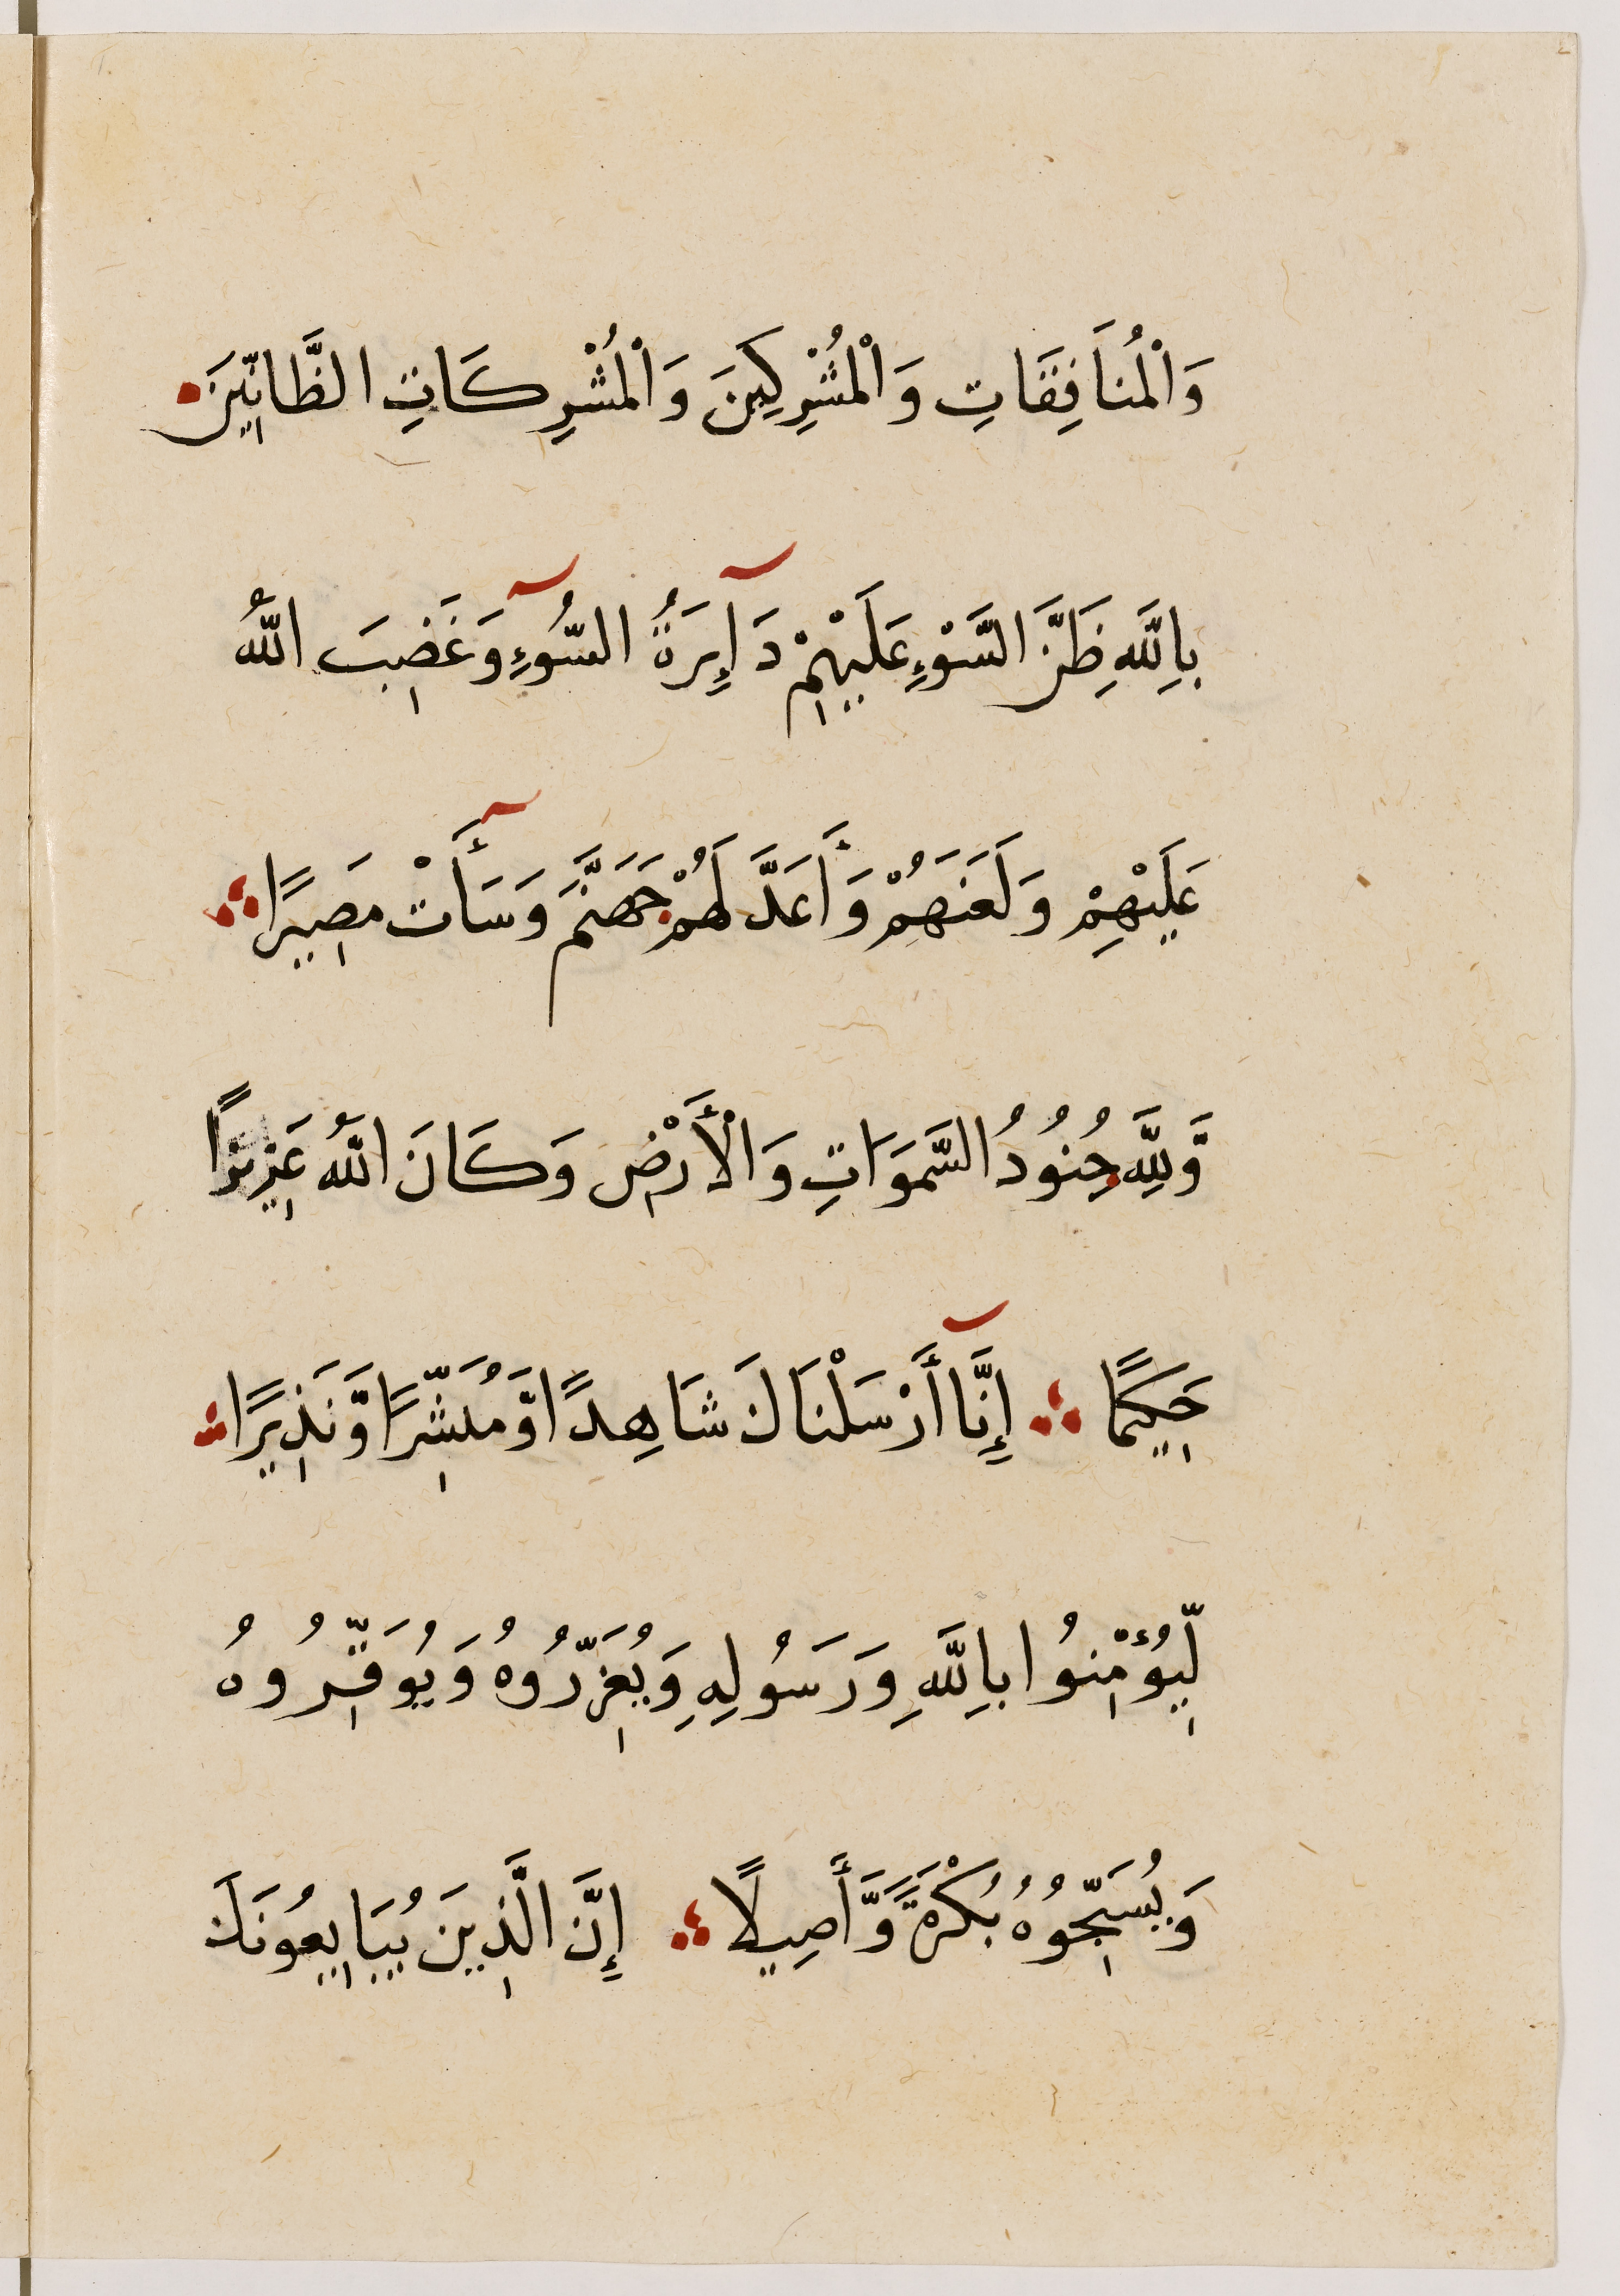 وَالْمُنَافِقَاتِ وَالْمُشْرِكِينَ وَالْمُشْرِكَاتِ الظَّانِّينَ
بِاللَّهِ ظَنَّ السَّوْءِ عَلَيْهِمْ دَآئِرَةُ السُّوءِ وَغَضِبَ اللَّهُ
عَلَيْهِمْ وَلَعَنَهُمْ وَأَعَدَّ لَهُمْ جَهَنَّمَ وَسَأَتْ مَصِيرًا ؞
وَّلِلَّهِ جُنُودُ السَّمَوَاتِ وَالْأَرْضِ وَكَانَ اللَّهُ عَزِيزًا
حَكِيمًا ؞ إِنَّا أَرْسَلْنَاكَ شَاهِدًا وَّمُبَشِّرًا وَّنَذِيرًا ؞
لِّيُؤْمِنُوا بِاللَّهِ وَرَسُولِهِ وَيُعَزِّرُوهُ وَيُوَقِّرُوهُ
وَيُسَبِّحُوهُ بُكْرَةً وَّأَصِيلًا ؞ إِنَّ الَّذِينَ يُبَايِعُونَكَ